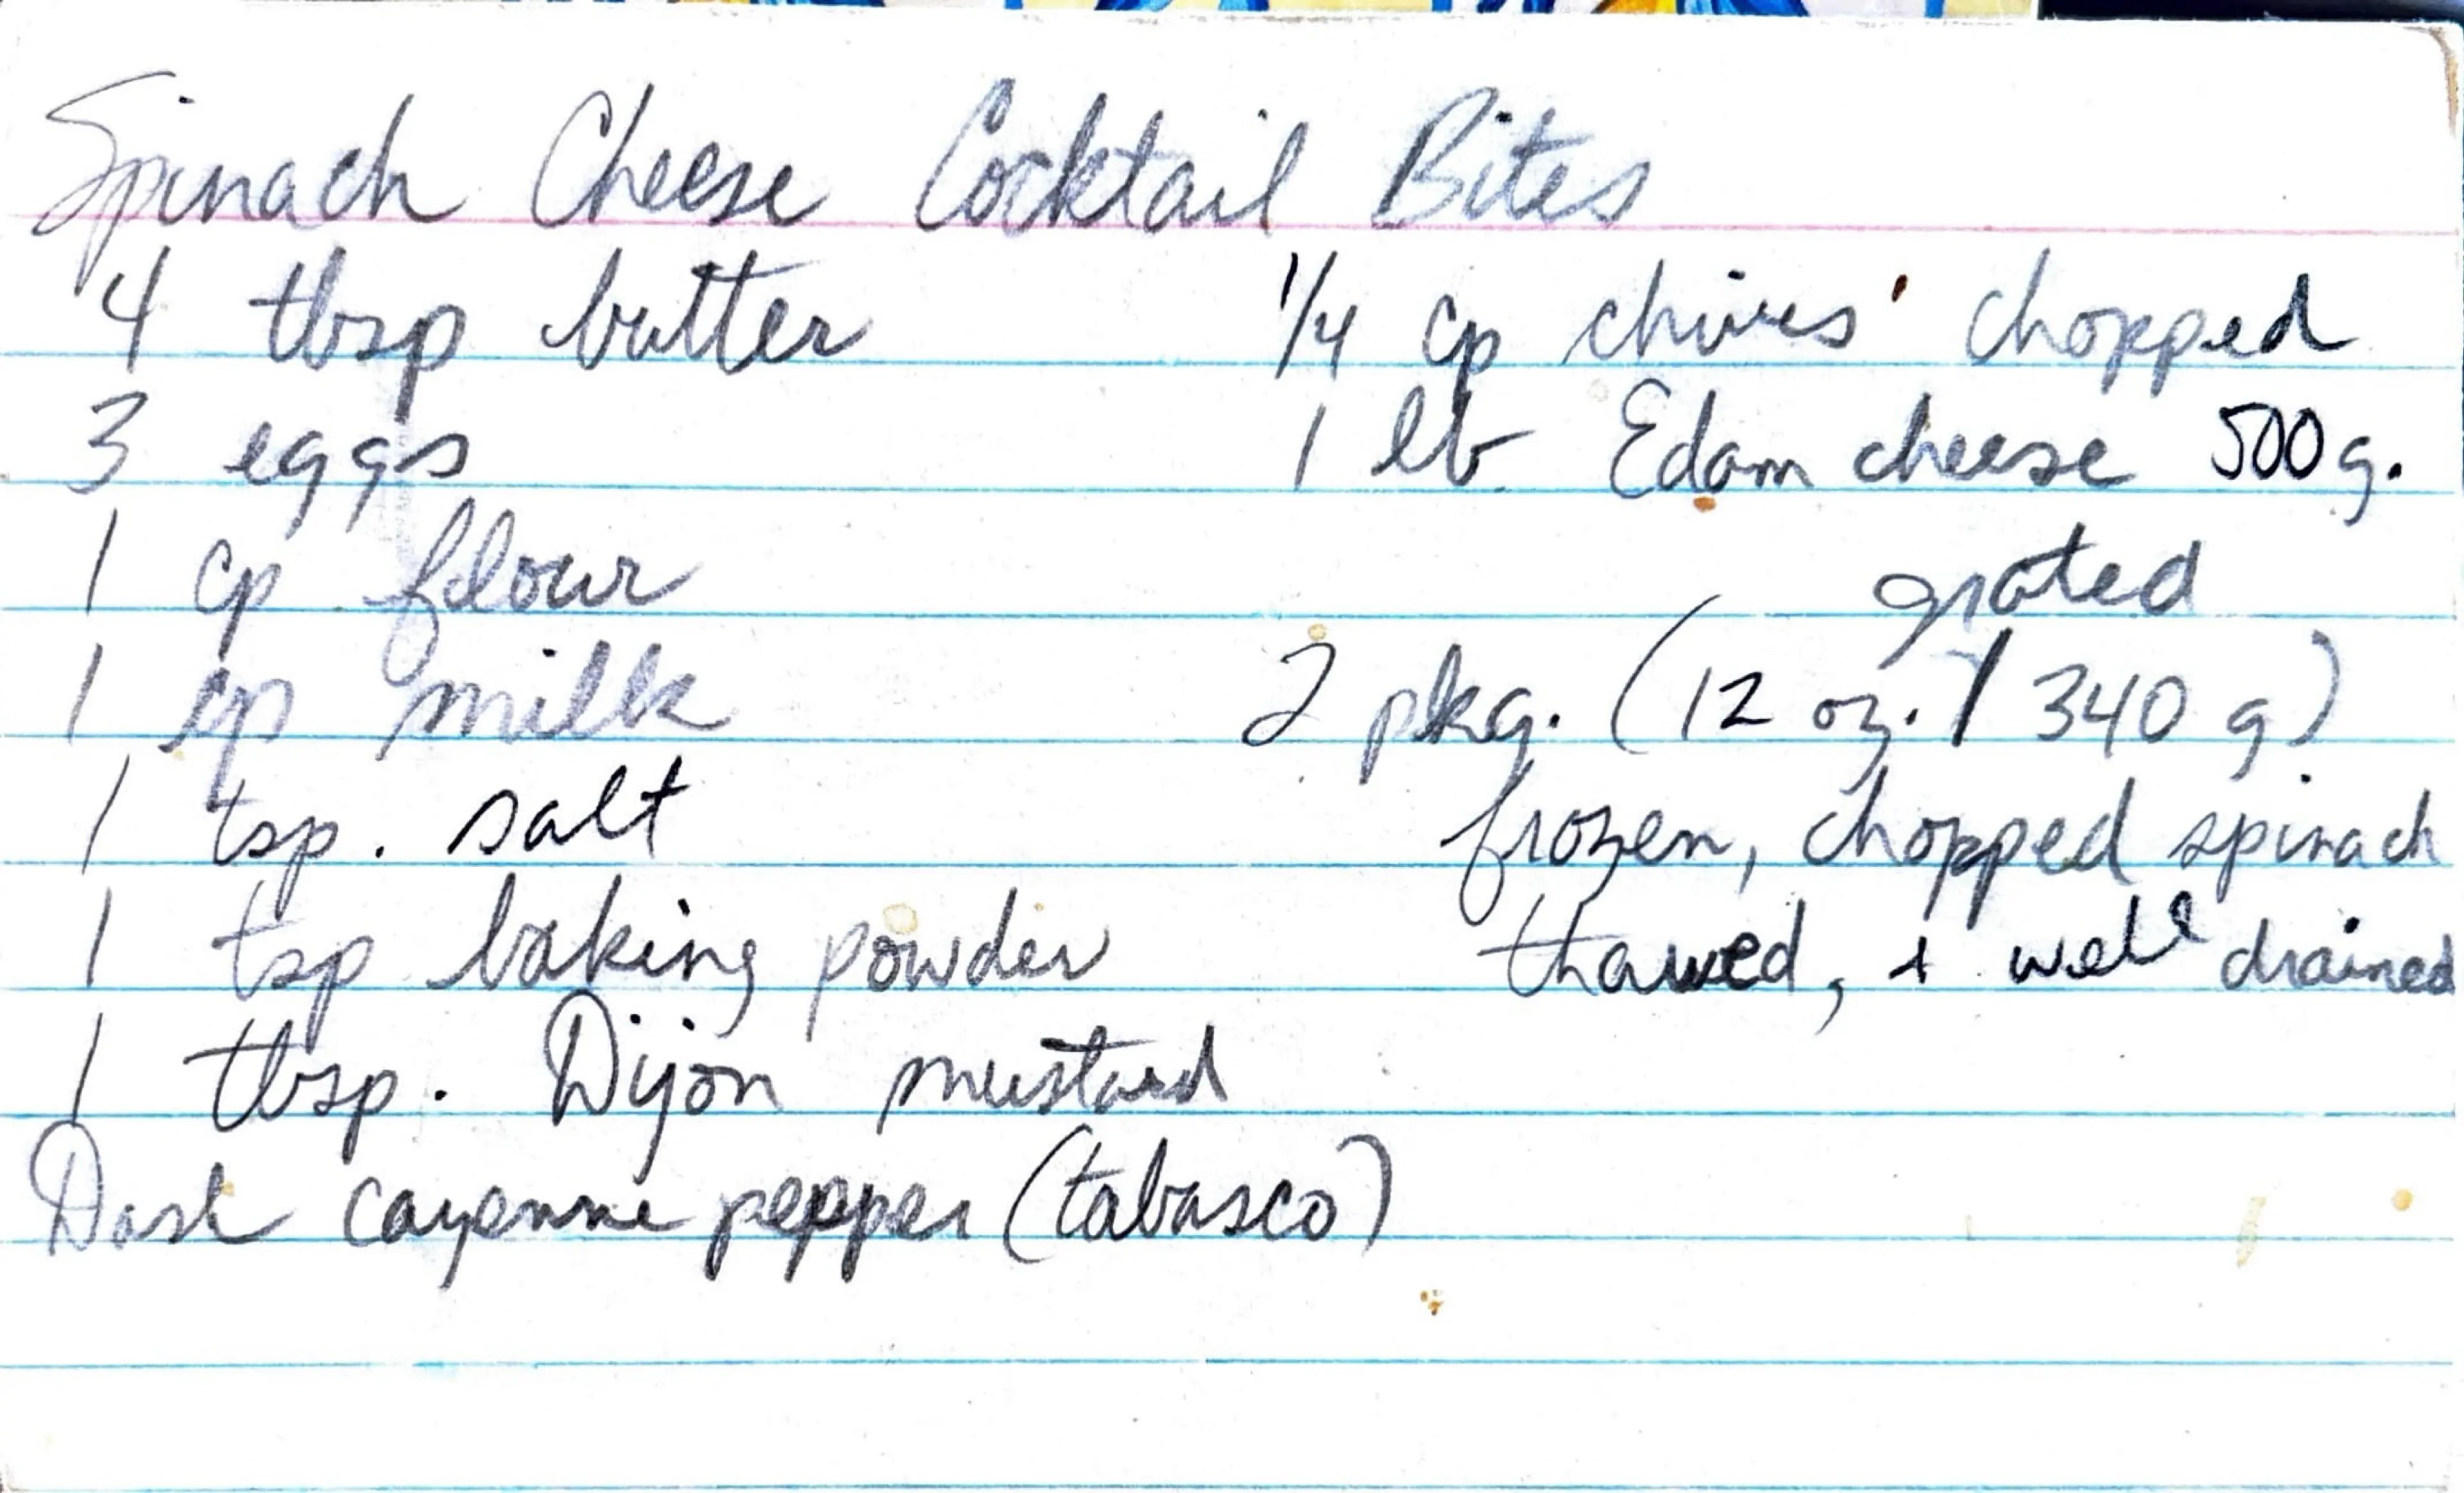 Spinach Cheese Cocktail Bites
4 tbsp butter
3 eggs
1 cp flour
1 cp milk
1 tsp. salt
1 tsp baking powder
1 tbsp. Dijon mustard
Dash cayenne pepper (tabasco)
1/4 cp chives chopped
1 lb. Edam cheese 500g.
grated
2 pkg. (12 oz. / 340 g)
frozen, chopped spinach
thawed, + well drained